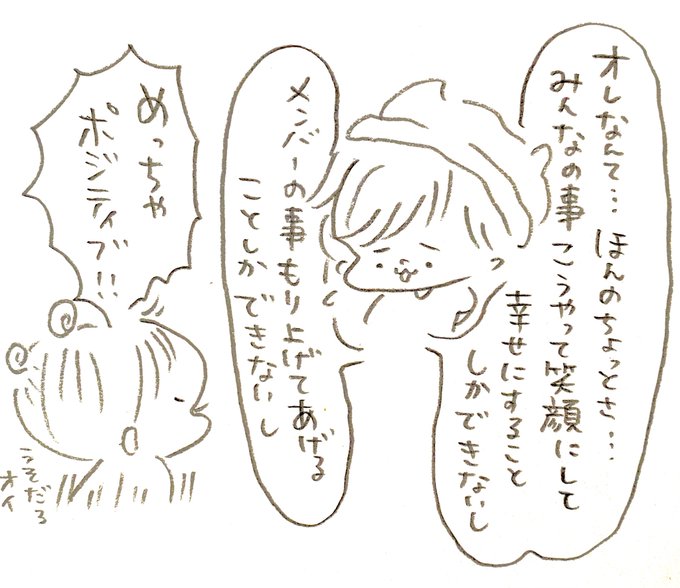 オレなんて… ほんのちょっとさ…
みんなの事 こうやって笑顔にして
幸せにすること
しかできないし
メンバーの事もり上げてあげる
ことしかできないし
めっちゃ
ポジティブ!!
うそだろ
オイ